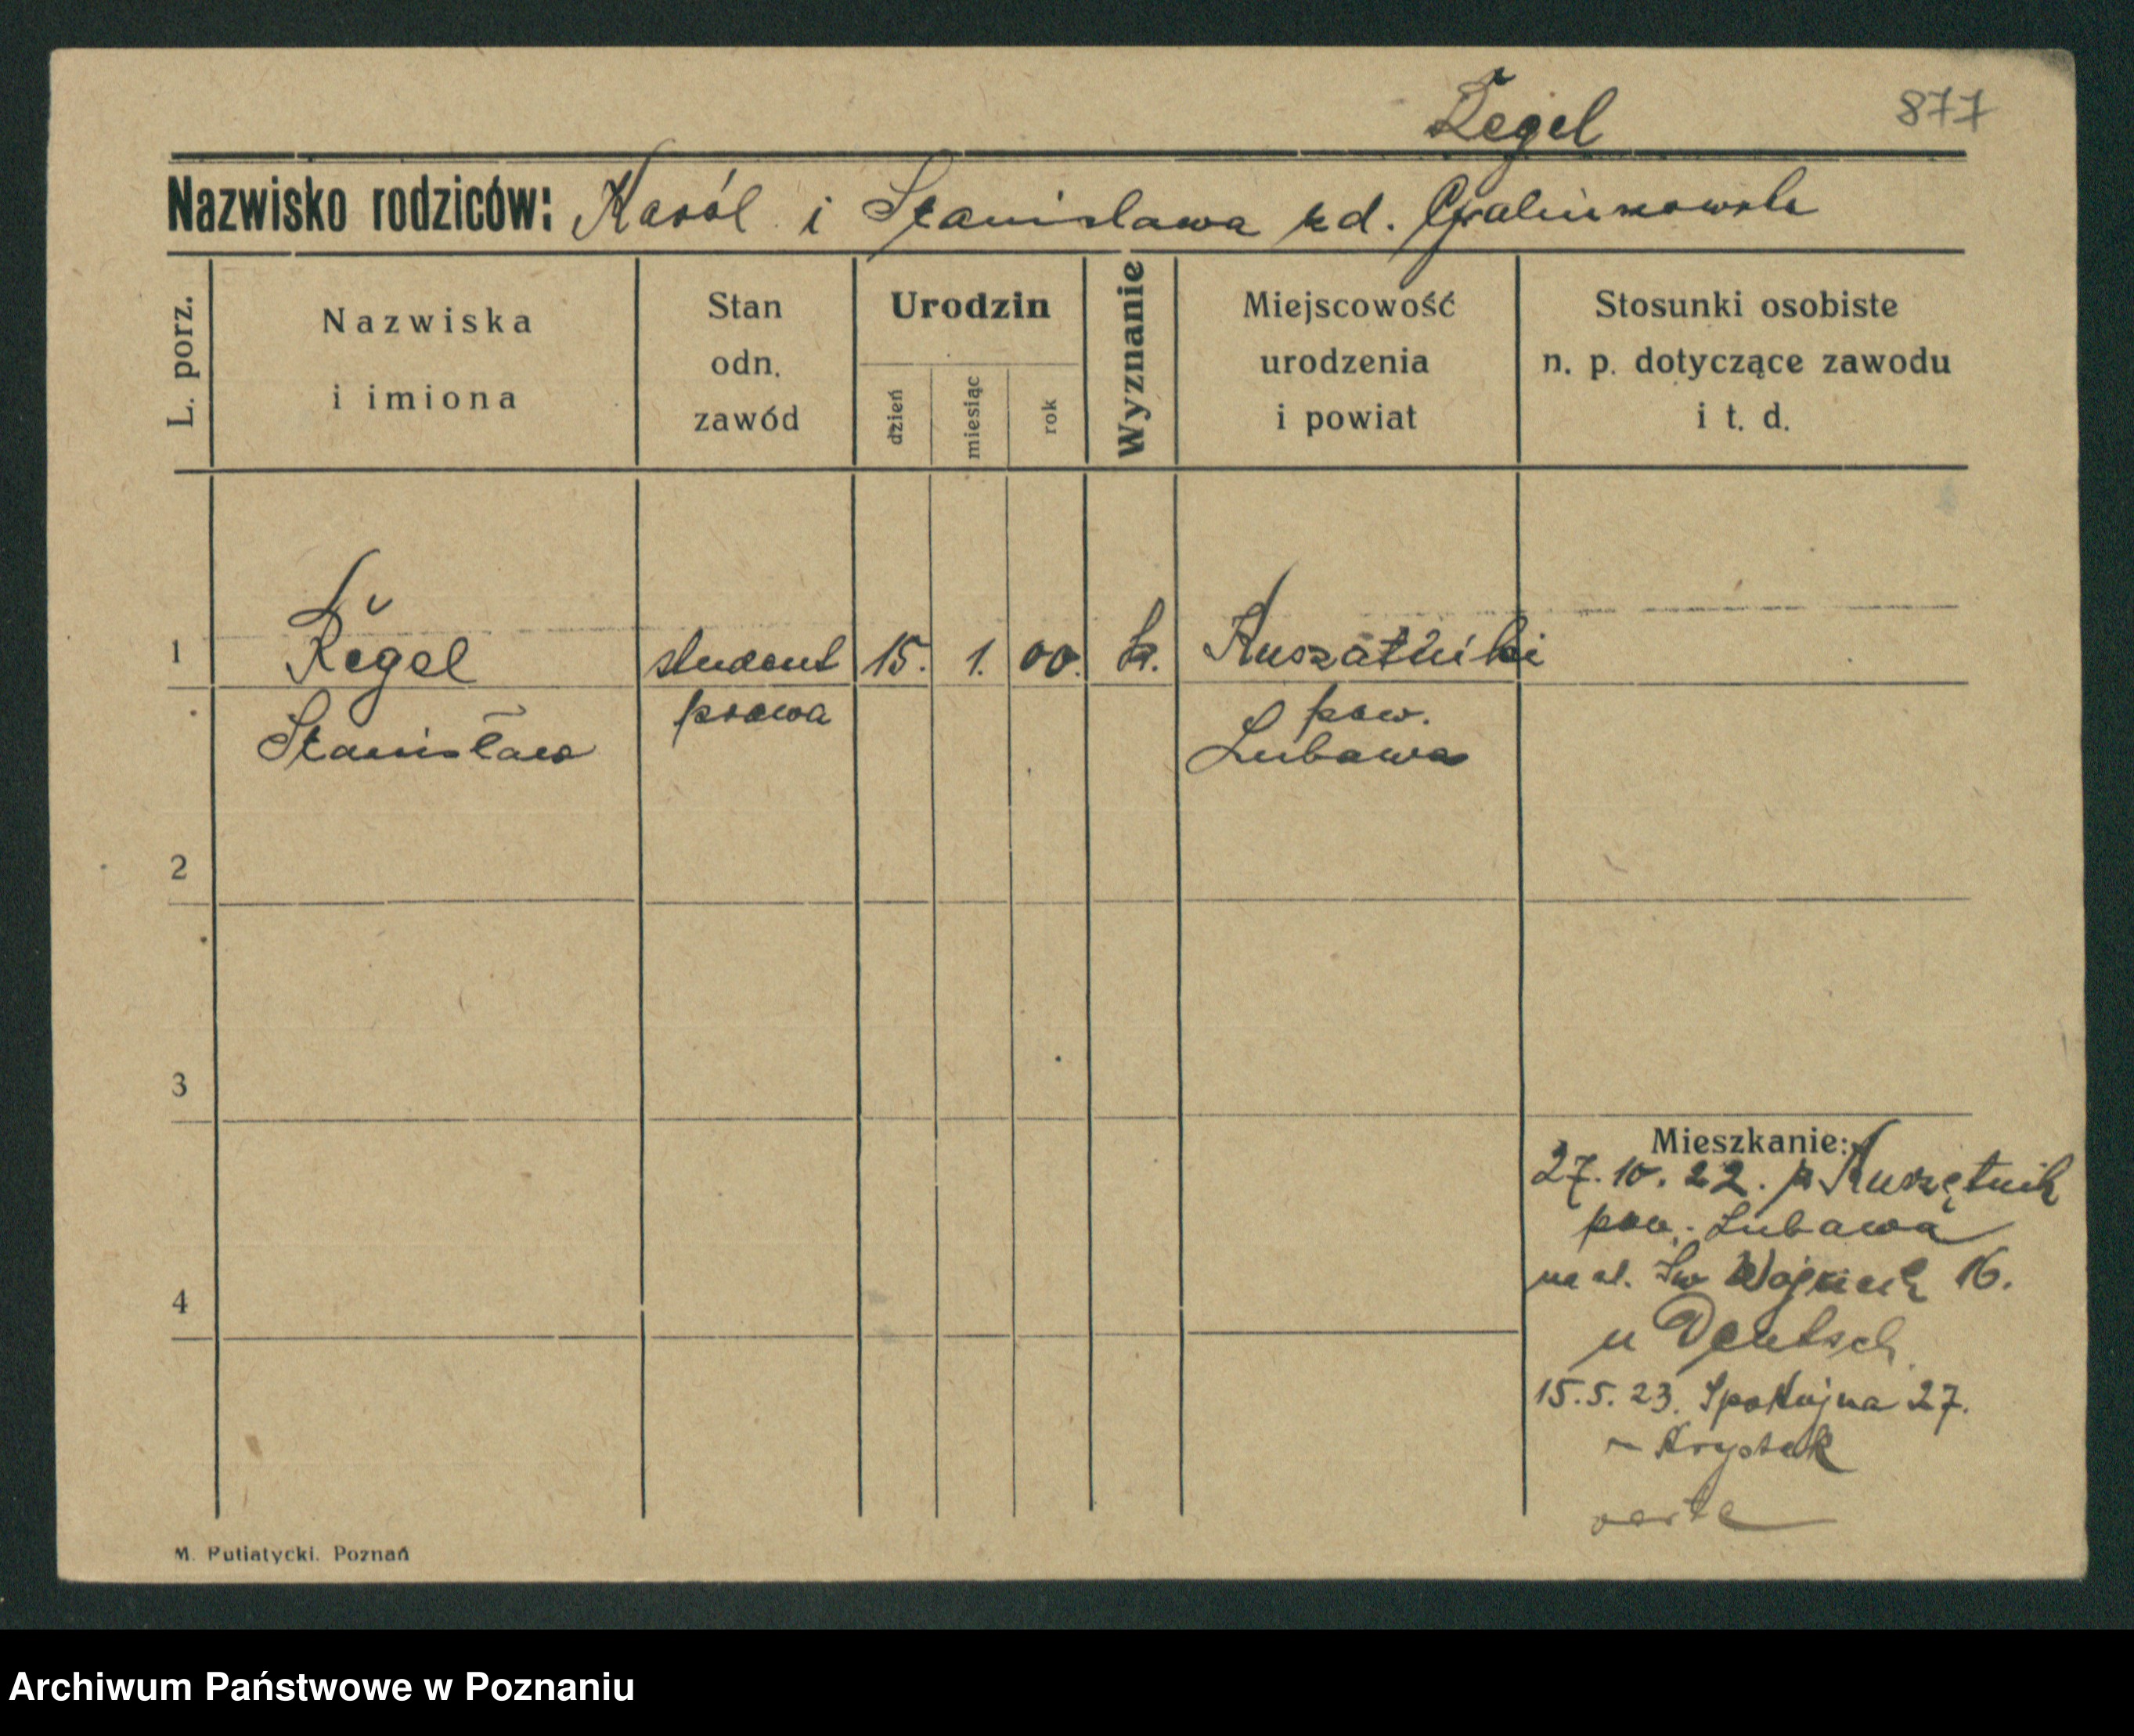 Żegel
877
Nazwisko rodziców: Karól i Stanisława zd.
L. porz.
Nazwiska i imiona
Stan odn. zawód
Urodzin
dzień
miesiąc
rok
Wyznanie
Miejscowość urodzenia i powiat
Stosunki osobiste n. p. dotyczące zawodu i t. d.
1
Żegel
student
15. 1. 00. k.
Stanisław
prawa
pow.
Lubawa
2
3
4
Mieszkanie:
27. 10. 22. z Kurzętnik
pow. Lubawa
na ul. Św Wojciech 16.
u Deutsch
15. 5. 23. Spokojna 27.
Krystek
verte
M. Putiatycki. Poznań
Archiwum Państwowe w Poznaniu